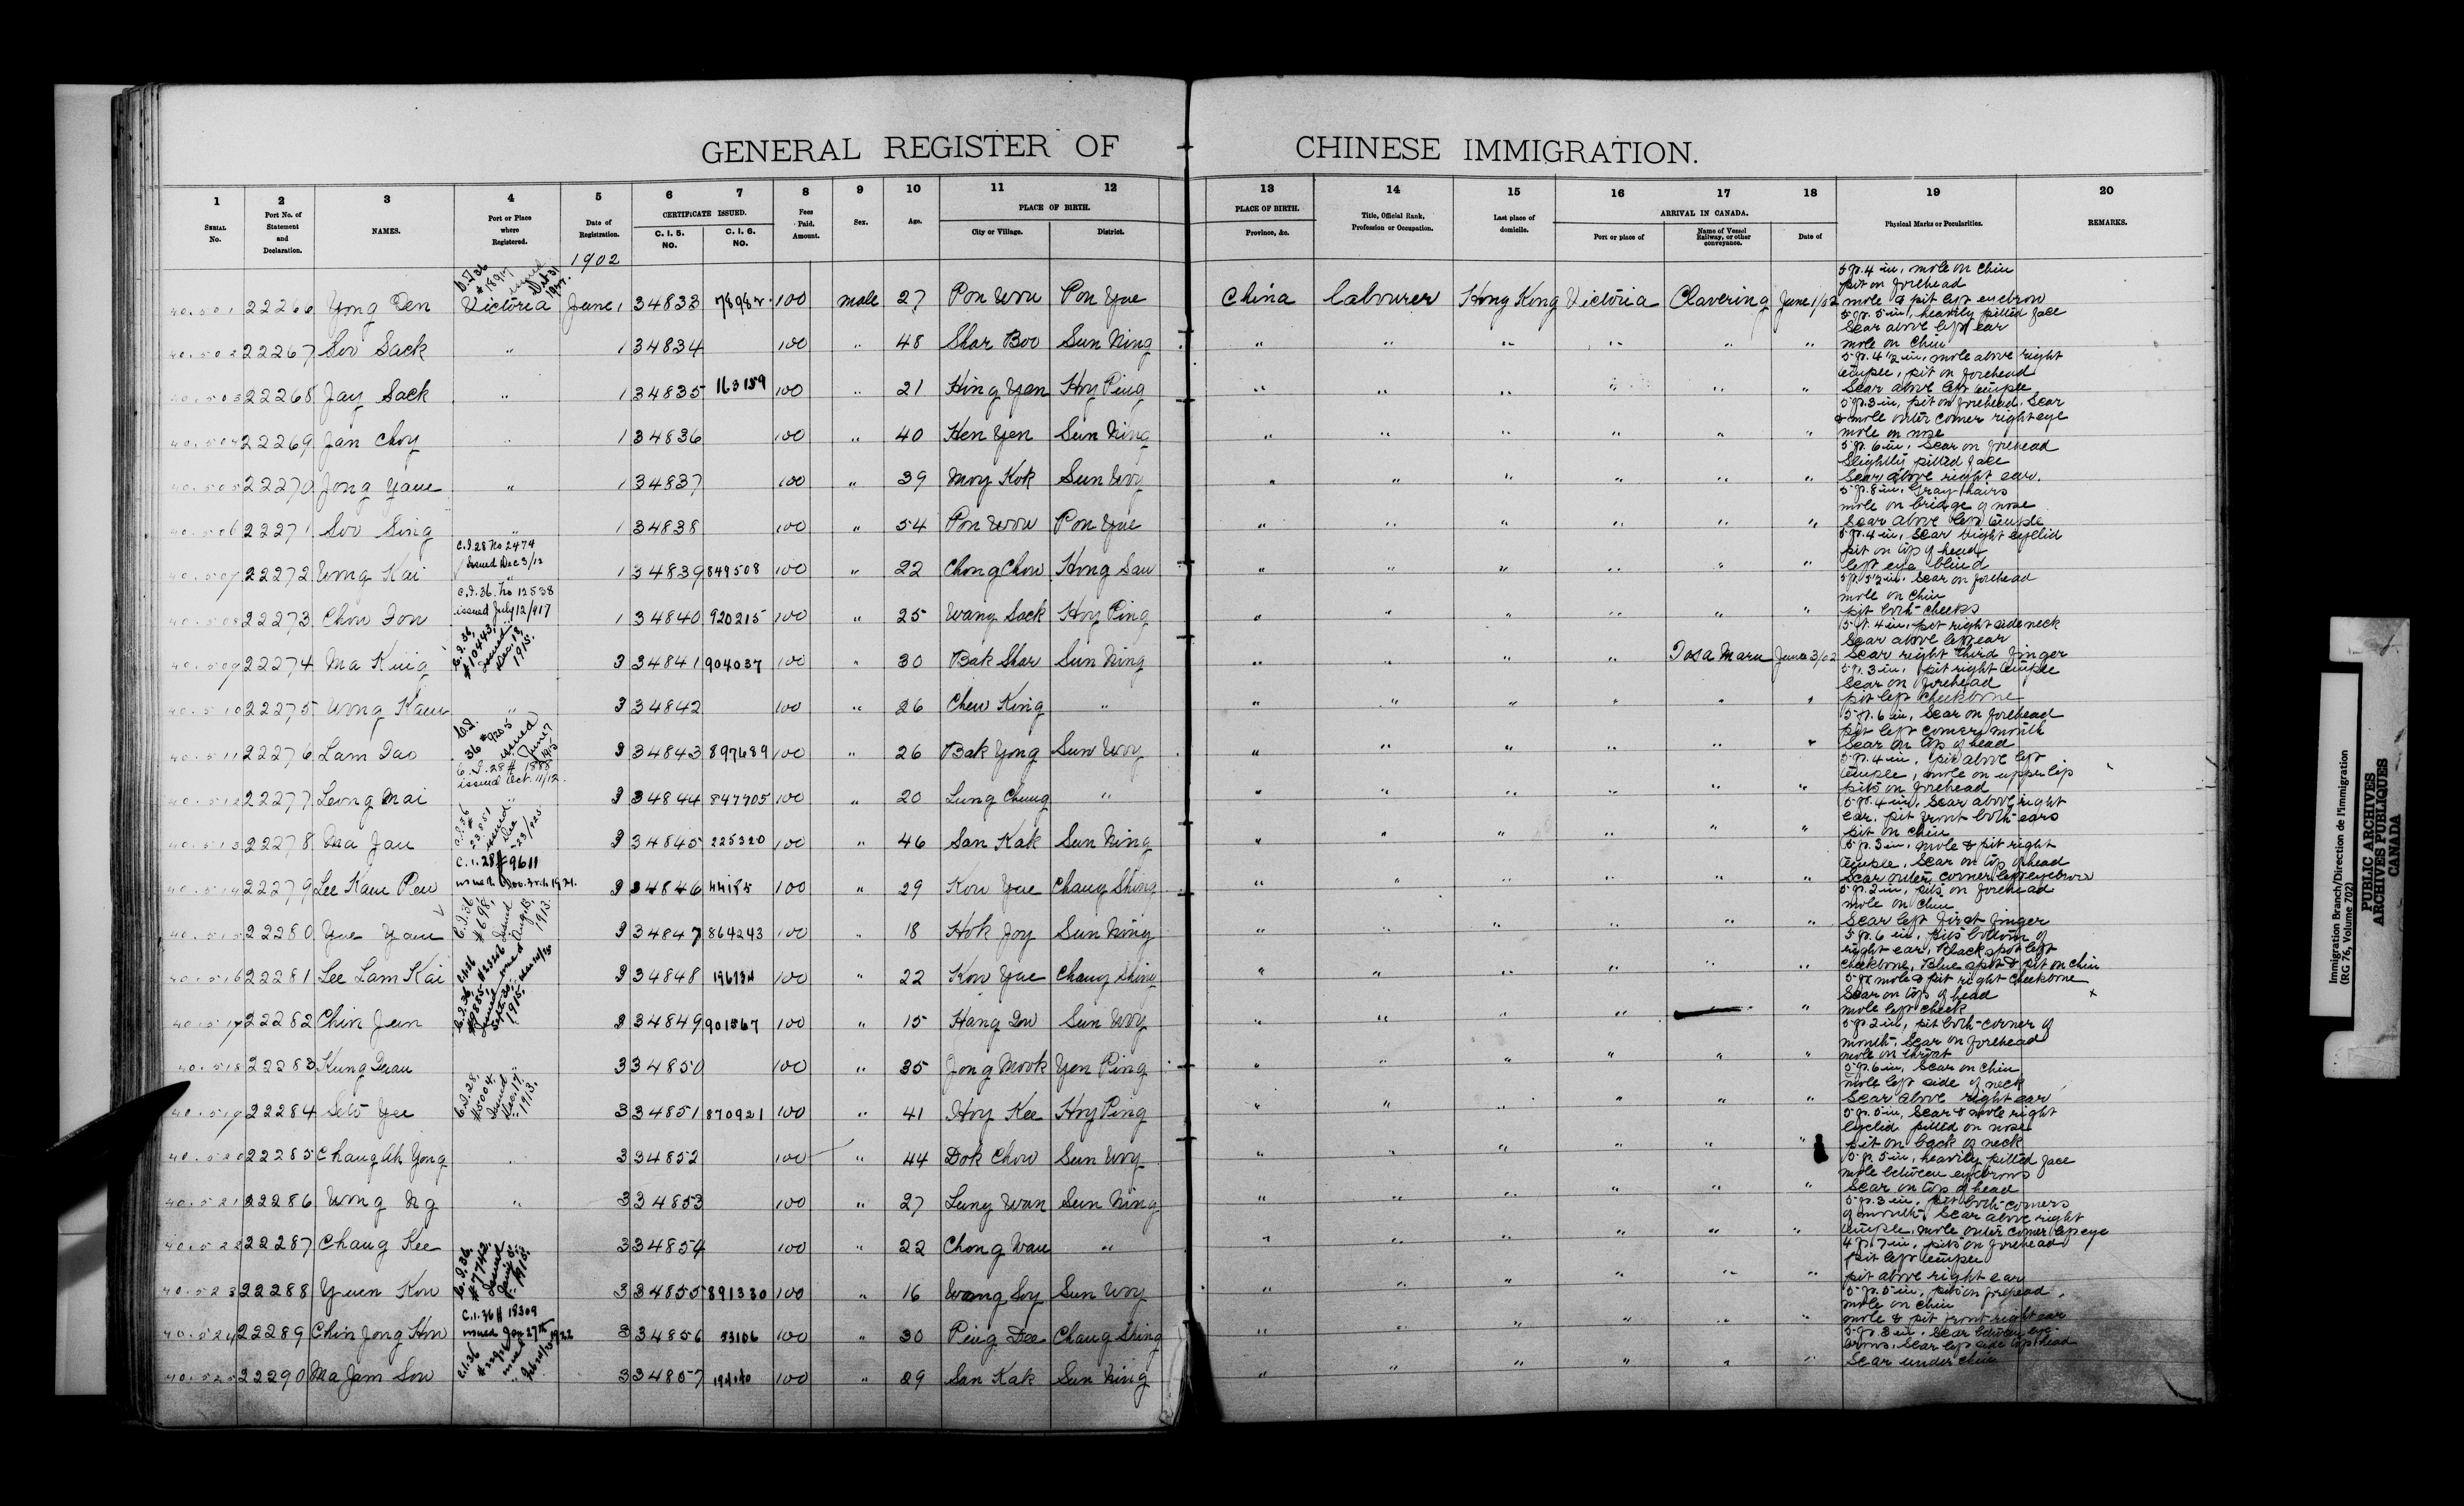 GENERAL REGISTER OF CHINESE IMMIGRATION.
1 2 3 4 5 6 7 8 9 10 11 12 13 14 15 16 17 18 19 20
SERIAL No. Port No. of Statement and Declaration. NAMES. Port or Place where Registered. Date of Registration. CERTIFICATE ISSUED. C. I. 5. NO. C. I. 6. NO. Fees Paid. Amount. Sex. Age. PLACE OF BIRTH. City or Village. District. PLACE OF BIRTH. Province, &c. Title, Official Rank, Profession or Occupation. Last place of domicile. ARRIVAL IN CANADA. Port or place of Name of Vessel Railway, or other conveyance. Date of Physical Marks or Pecularities. REMARKS.
1902
40.501 22266 Yong Den Victoria June 1 34833 100 male 27 Pon Wou Pon Yue China labourer Hong Kong Victoria Clavering June 1/02 5 ft. 4 in, mole on chin pit on forehead mole & pit left eyebrow
40.502 22267 Soo Sack " 1 34834 100 " 48 Shar Boo Sun Ning " " " " " " 5 ft. 5 in, heavily pitted face Scar above left ear mole on chin
40.503 22268 Jay Sack " 1 34835 163159 100 " 21 Hing Yen Hoy Ping " " " " " " 5 ft. 4 1/2 in, mole above right temple, pit on forehead Scar above left temple
40.504 22269 Jan Choy " 1 34836 100 " 40 Hen Yen Sun Ning " " " " " " 5 ft. 3 in, pit on forehead. Scar & mole outer corner right eye mole on nose
40.505 22270 Jong Yaue " 1 34837 100 " 39 Moy Kok Sun Woy " " " " " " 5 ft. 6 in, Scar on forehead Slightly pitted face Scar above right ear.
40.506 22271 Soo Sing " 1 34838 100 " 54 Pon Wou Pon Yue " " " " " " 5 ft. 8 in, Gray hairs mole on bridge of nose Scar above left temple
C.I.28 No 2474 Issued Dec 3/12
40.507 22272 Wong Kai " 1 34839 849508 100 " 22 Chong Chow Hong San " " " " " " 5 ft. 4 in, Scar right eyelid pit on top of head left eye blind
C.I.36. No 12538 issued July 12/917
40.508 22273 Chow Fon 1 34840 920215 100 " 25 Wang Sack Hoy Ping " " " " " " Scar on forehead mole on chin pit both cheeks
C.I.36, #10443, Issued Dec. 18, 1915.
40.509 22274 Ma King 3 34841 904037 100 " 30 Bak Shar Sun Ning " " " " Tosa Maru June 3/02 5 ft. 4 in, pit right side neck Scar above left ear Scar right third finger
40.510 22275 Wong Kaue " 3 34842 100 " 26 Chew King " " " " " " " 5 ft. 3 in, pit right temple Scar on forehead pit left cheekbone
C.I. 36 #9205 issued June 7 1915
40.511 22276 Lam Tao 3 34843 897689 100 " 26 Bak Yong Sun Woy " " " " " " 5 ft. 6 in, Scar on forehead pit left corner mouth Scar on top of head
C.I. 28 # 1888 issued Oct. 11/12.
40.512 22277 Leong Mai " 3 34844 847705 100 " 20 Lung Chung " " " " " " " 5 ft. 4 in, pit above left temple, mole on upper lip pits on forehead
C.I.36 # 23851 issued Dec 23/925
40.513 22278 Ma Jan 3 34845 225320 100 " 46 San Kak Sun Ning " " " " " " 5 ft. 4 in, Scar above right ear. pit front both ears pit on chin
C.I.28 # 9611
40.514 22279 Lee Kaue Pew 3 34846 100 " 29 Kow Yue Chang Shing " " " " " " 5 ft. 3 in, mole & pit right temple, Scar on top of head Scar outer corner left eyebrow
C.I.36, #698, Issued Aug. 13, 1913.
40.515 22280 Yue Yaue 3 34847 864243 100 " 18 Hok Joy Sun Ning " " " " " " 5 ft. 2 in, pits on forehead mole on chin Scar left first finger
40.516 22281 Lee Lam Kai 3 34848 100 " 22 Kow Yue Chang Shing " " " " " " 5 ft. 6 in, pits bottom of right ear, Black spot left cheekbone, Blue spot & pit on chin
C.I.36, #9885, Issued Sept. 30, 1915.
40.517 22282 Chin Jun 3 34849 901567 100 " 15 Hang Dow Sun Woy " " " " " 5 ft. mole & pit right cheekbone Scar on top of head mole left cheek x
40.518 22283 Kung Duau 3 34850 100 " 35 Jong Mook Yen Ping " " " " " " 5 ft. 2 in, pit both corner of mouth, Scar on forehead mole on throat
C.I.28, #5004, Issued Dec. 17, 1913.
40.519 22284 Seto Yee 3 34851 870921 100 " 41 Hoy Kee Hoy Ping " " " " " " 5 ft. 6 in, Scar on chin mole left side of neck Scar above right ear
40.520 22285 Chang Ah Yong " 3 34852 100 " 44 Dok Chow Sun Woy " " " " " " 5 ft. 5 in, Scar & mole right eyelid pitted on nose pit on back of neck
40.521 22286 Wong Ng " 3 34853 100 " 27 Lung Wan Sun Ning " " " " " " 5 ft. 5 in, heavily pitted face mole between eyebrows Scar on top of head
40.522 22287 Chang Kee 3 34854 100 " 22 Chong Wau " " " " " " " 5 ft. 3 in, pit both corners of mouth, Scar above right temple, mole outer corner left eye
C.I.36, #7742, Issued 1915.
40.523 22288 Yuen Kow 3 34855 891330 100 " 16 Wang Soy Sun Woy " " " " " " 4 ft. 7 in, pits on forehead pit left temple pit above right ear
C.I.36 # 18309 issued Jan 27th 1922
40.524 22289 Chin Jong Hon 3 34856 53106 100 " 30 Ping Dee Chang Shing " " " " " " 5 ft. 5 in, pits on forehead, mole on chin mole & pit front right ear
C.I.36
40.525 22290 Ma Jam Son 3 34857 100 " 29 San Kak Sun Ning " " " " " " 5 ft. 3 in, Scar between eyebrows, Scar left side top head Scar under chin
Immigration Branch/Direction de l'immigration
(RG 76, Volume 702)
PUBLIC ARCHIVES
ARCHIVES PUBLIQUES
CANADA